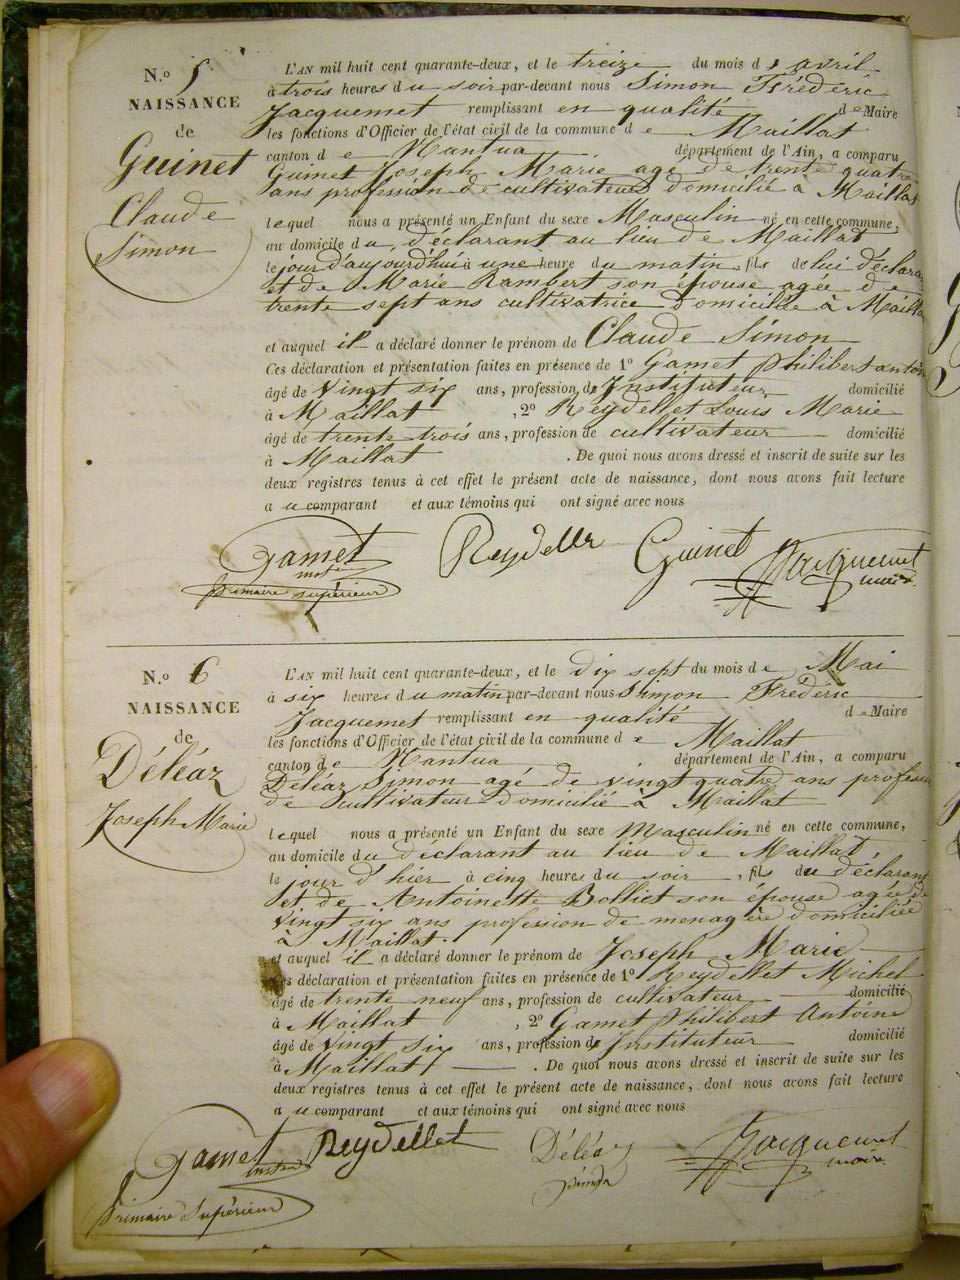 N.o 5
NAISSANCE
de
Guinet
Claude
Simon
L'AN mil huit cent quarante-deux, et le treize du mois d'avril
à trois heures du soir par-devant nous Simon Frédéric
Jacquemet remplissant en qualité de Maire
les fonctions d'Officier de l'état civil de la commune de Maillat
canton de Nantua département de l'Ain, a comparu
Guinet Joseph Marie agé de trente quatre
ans profession de cultivateur domicilié à Maillat
lequel nous a présenté un Enfant du sexe Masculin né en cette commune,
au domicile du déclarant au lieu de Maillat
le jour d'aujourd'hui à une heure du matin, fils de lui déclara
et de Marie Rambert son épouse agée de
trente sept ans cultivatrice domiciliée à Mailla
et auquel il a déclaré donner le prénom de Claude Simon
Ces déclaration et présentation faites en présence de 1o Gamet Philibert antoin
âgé de vingt six ans, profession de Instituteur domicilié
à Maillat , 2o Reydellet Louis Marie
âgé de trente trois ans, profession de cultivateur domicilié
à Maillat . De quoi nous avons dressé et inscrit de suite sur les
deux registres tenus à cet effet le présent acte de naissance, dont nous avons fait lecture
au comparant et aux témoins qui ont signé avec nous
Gamet Reydellet Guinet Jacquemet
primaire supérieur maire
N.o 6
NAISSANCE
de
Déléaz
Joseph Marie
L'AN mil huit cent quarante-deux, et le dix sept du mois de Mai
à six heures du matin par-devant nous Simon Frédéric
Jacquemet remplissant en qualité de Maire
les fonctions d'Officier de l'état civil de la commune de Maillat
canton de Nantua département de l'Ain, a comparu
Déléaz Simon agé de vingt quatre ans profession
de cultivateur domicilié à Maillat
lequel nous a présenté un Enfant du sexe Masculin né en cette commune,
au domicile du déclarant au lieu de Maillat
le jour d'hier à cinq heures du soir, fils du déclarant
et de Antoinette Bolliet son épouse agée de
vingt six ans profession de menagère domiciliée
à Maillat.
et auquel il a déclaré donner le prénom de Joseph Marie
Ces déclaration et présentation faites en présence de 1o Reydellet Michel
âgé de trente neuf ans, profession de cultivateur domicilié
à Maillat , 2o Gamet Philibert Antoine
âgé de vingt six ans, profession de Instituteur domicilié
à Maillat . De quoi nous avons dressé et inscrit de suite sur les
deux registres tenus à cet effet le présent acte de naissance, dont nous avons fait lecture
au comparant et aux témoins qui ont signé avec nous
Gamet Reydellet Déléaz Jacquemet
primaire supérieur maire